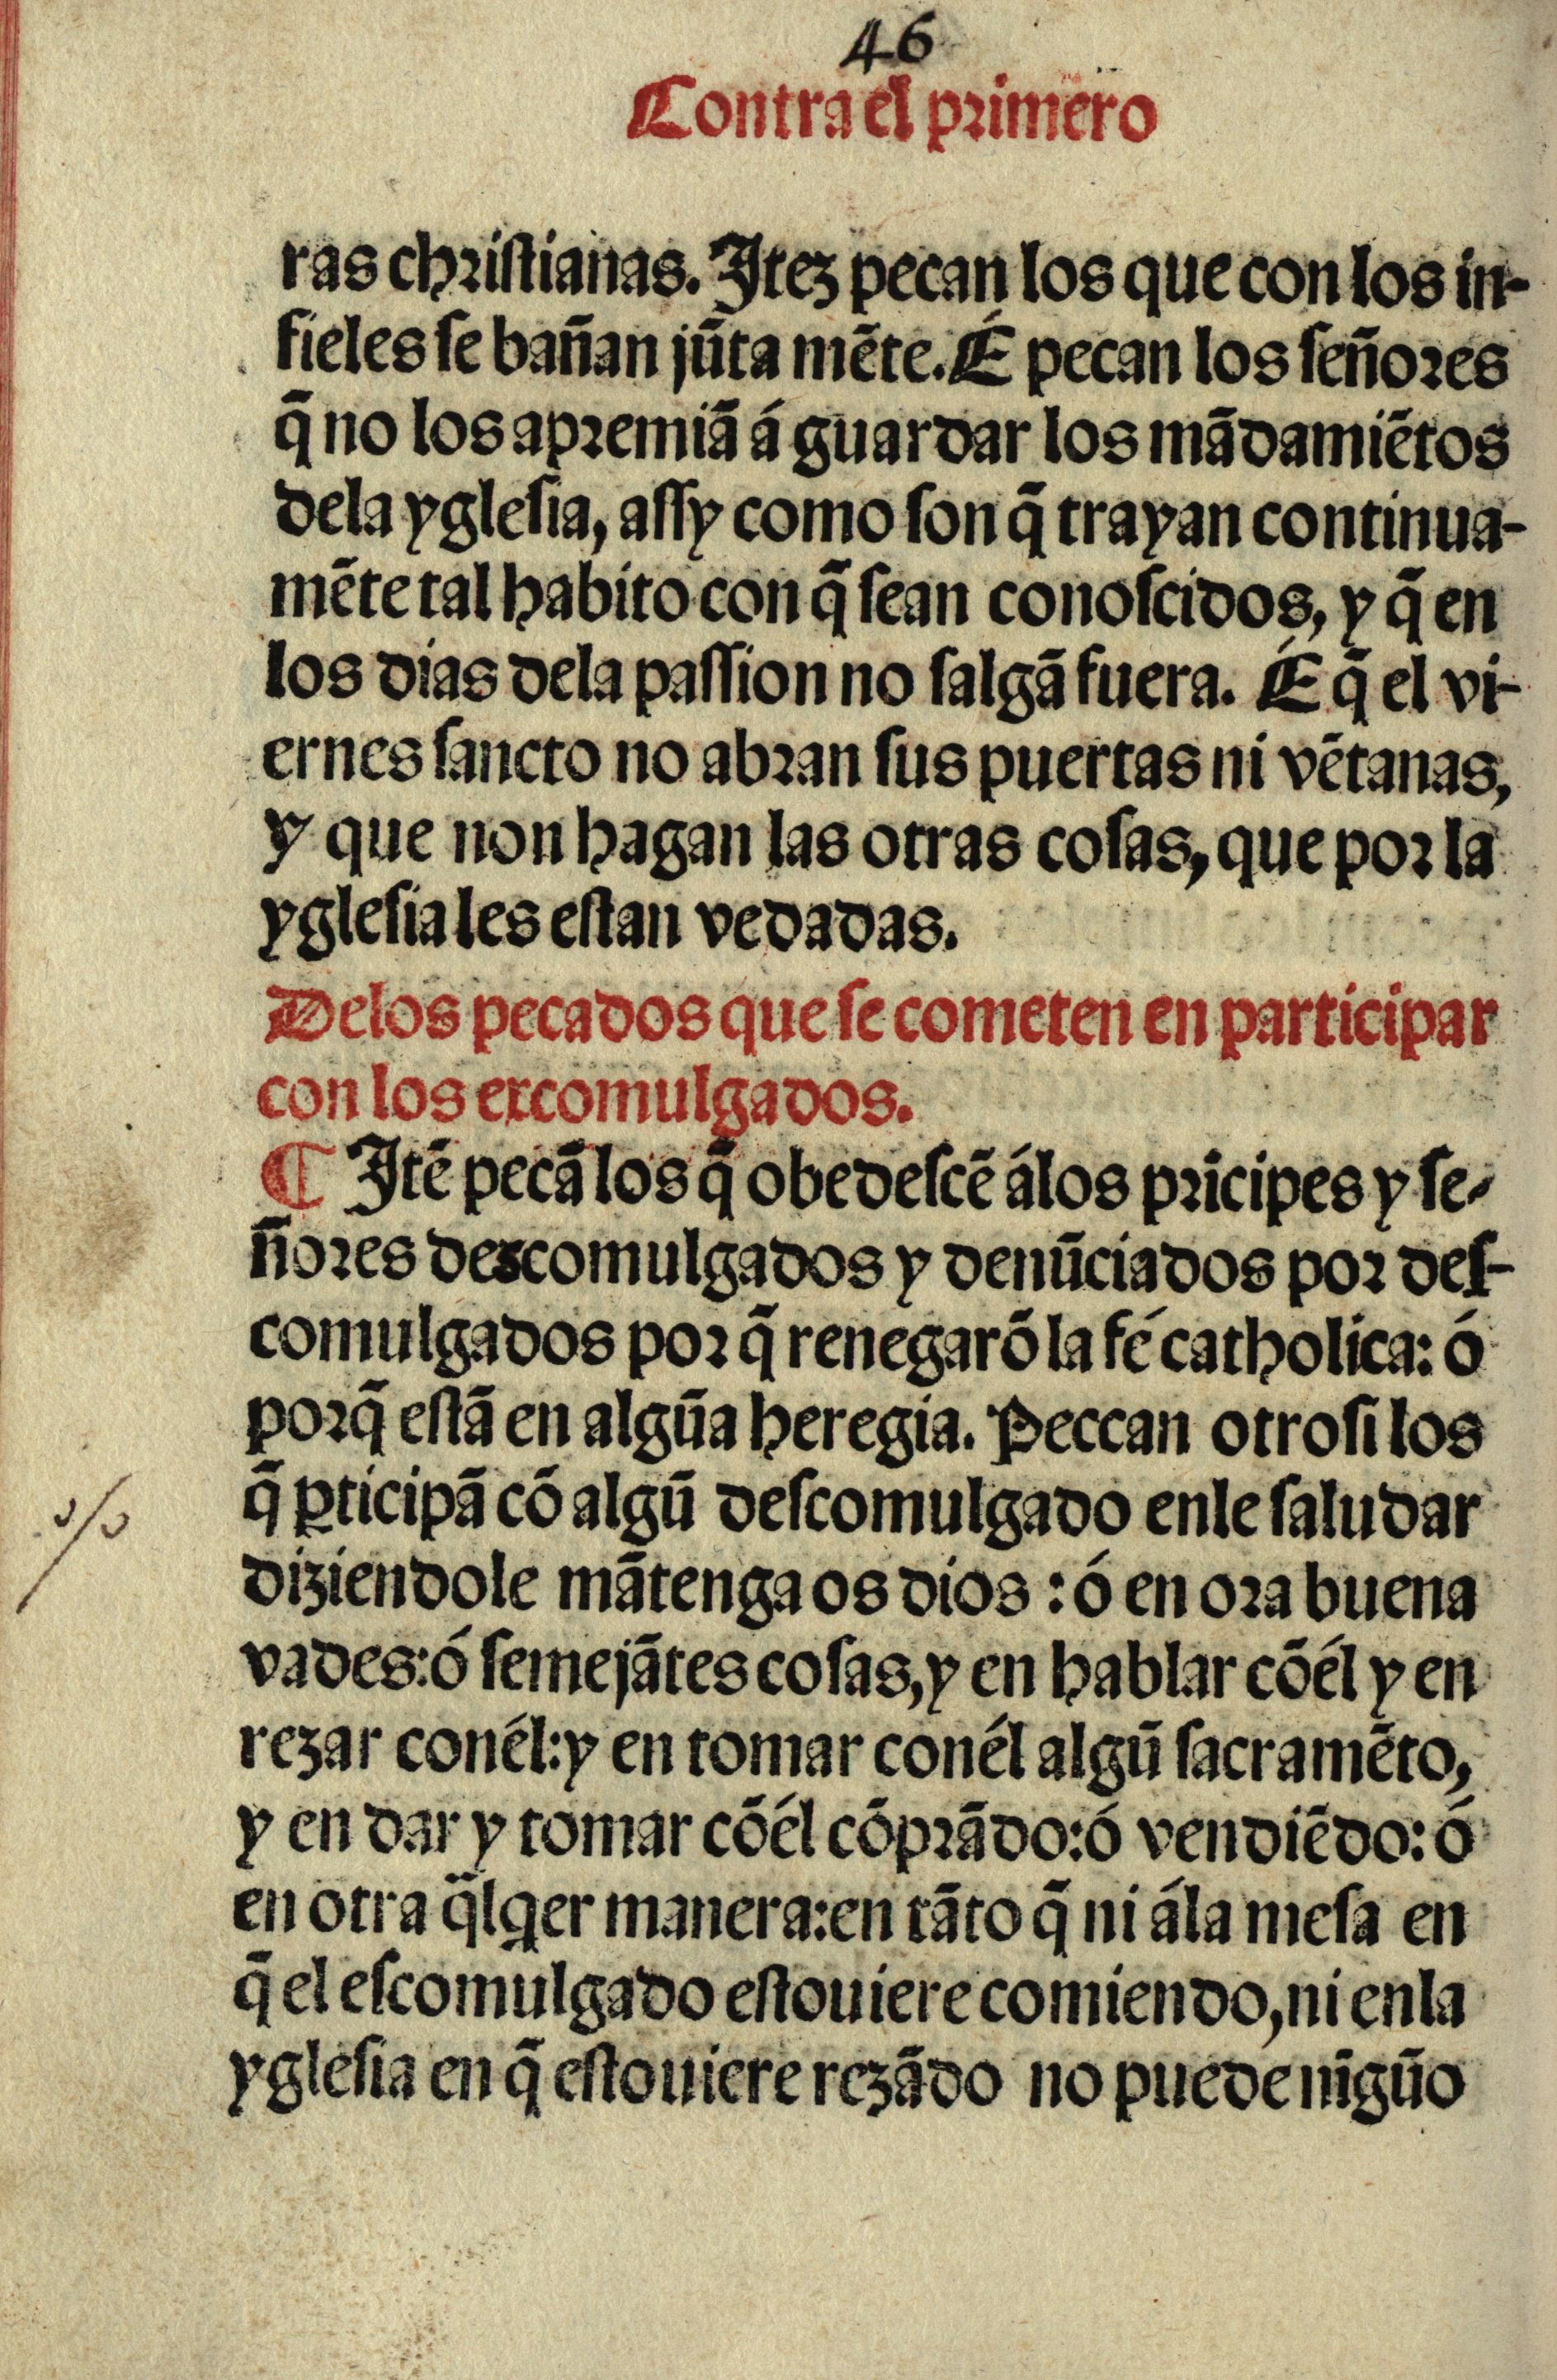 46
Contra el primero
ras chriſtianas. Itez pecan los que con los in-
fieles ſe bañan jũta mẽte. É pecan los ſeñores
q̃ no los apremiã á guardar los mãdamiẽtos
dela ygleſia, aſſy como ſon q̃ trayan continua-
mẽte tal habito con q̃ ſean conoſcidos, y q̃ en
los dias dela paſſion no ſalgã fuera. É q̃ el vi-
ernes ſancto no abran ſus puertas ni vẽtanas,
y que non hagan las otras coſas, que por la
ygleſia les eſtan vedadas.
Delos pecados que ſe cometen en participar
con los excomulgados.
¶ Itẽ pecã los q̃ obedeſcẽ álos prĩcipes y ſe-
ñores dezcomulgados y denũciados por deſ-
comulgados por q̃ renegarõ la fé catholica: ó
porq̃ eſtã en algũa heregia. Peccan otroſi los
q̃ ꝑticipã cõ algũ deſcomulgado enle ſaludar
diziendole mãtenga os dios : ó en ora buena
vades: ó ſemejãtes coſas, y en hablar cõél y en
rezar conél: y en tomar conél algũ ſacramẽto,
y en dar y tomar cõél cõprãdo: ó vendiẽdo: ó
en otra q̃lq̃er manera: en tãto q̃ ni ála meſa en
q̃ el eſcomulgado eſtouiere comiendo, ni enla
ygleſia en q̃ eſtouiere rezãdo no puede nĩgũo